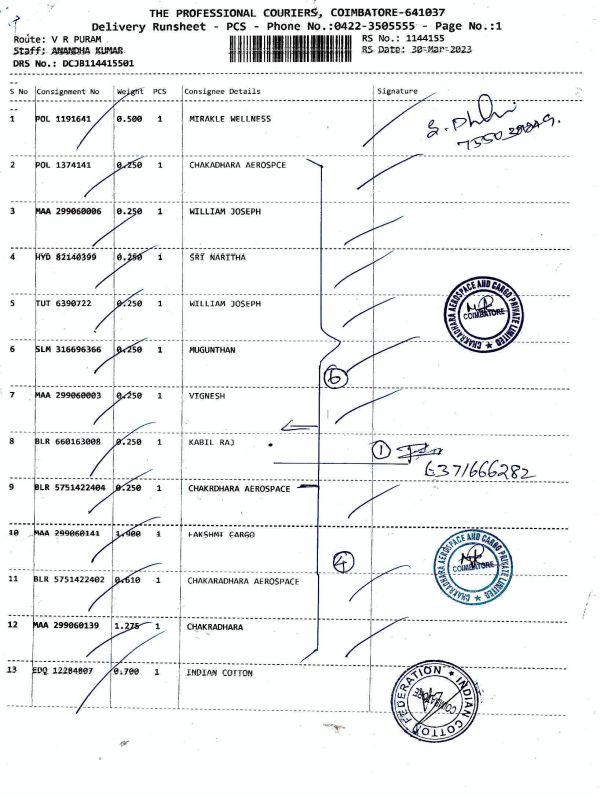 THE PROFESSIONAL COURIERS, COIMBATORE-641037
Delivery Runsheet - PCS - Phone No.:0422-3505555 - Page No.:1
Route: V R PURAM
RS No.: 1144155
Staff: ANANDHA KUMAR
RS Date: 30-Mar-2023
DRS No.: DCJB114415501
S No Consignment No Weight PCS Consignee Details Signature
1 POL 1191641 0.500 1 MIRAKLE WELLNESS
2 POL 1374141 0.250 1 CHAKADHARA AEROSPCE
3 MAA 299060006 0.250 1 WILLIAM JOSEPH
4 HYD 82140399 0.250 1 SRI NARITHA
5 TUT 6390722 0.250 1 WILLIAM JOSEPH
CHAKRADHARA AEROSPACE AND CARGO PRIVATE LIMITED
COIMBATORE
6 SLM 316696366 0.250 1 MUGUNTHAN
6
7 MAA 299060003 0.250 1 VIGNESH
8 BLR 660163008 0.250 1 KABIL RAJ
1
6371666282
9 BLR 5751422404 0.250 1 CHAKRDHARA AEROSPACE
10 MAA 299060141 1.900 1 LAKSHMI CARGO
4
CHAKRADHARA AEROSPACE AND CARGO PRIVATE LIMITED
COIMBATORE
11 BLR 5751422402 0.610 1 CHAKARADHARA AEROSPACE
12 MAA 299060139 1.275 1 CHAKRADHARA
13 EDQ 12284807 0.700 1 INDIAN COTTON
INDIAN COTTON FEDERATION
COIMBATORE